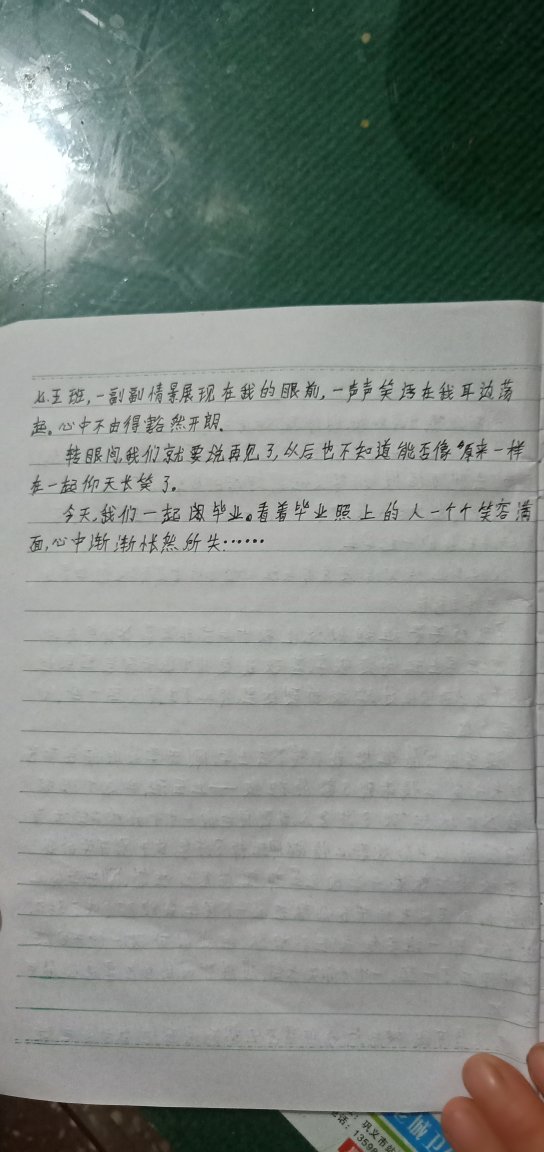 七.五班,一副副情景展现在我的眼前,一声声笑语在我耳边荡
起。心中不由得豁然开朗。
转眼间,我们就要说再见了,以后也不知道能否像原来一样
在一起仰天长笑了。
今天,我们一起图毕业。看着毕业照上的人一个个笑容满
面,心中渐渐怅然所失……
巩义市
话:1359
城